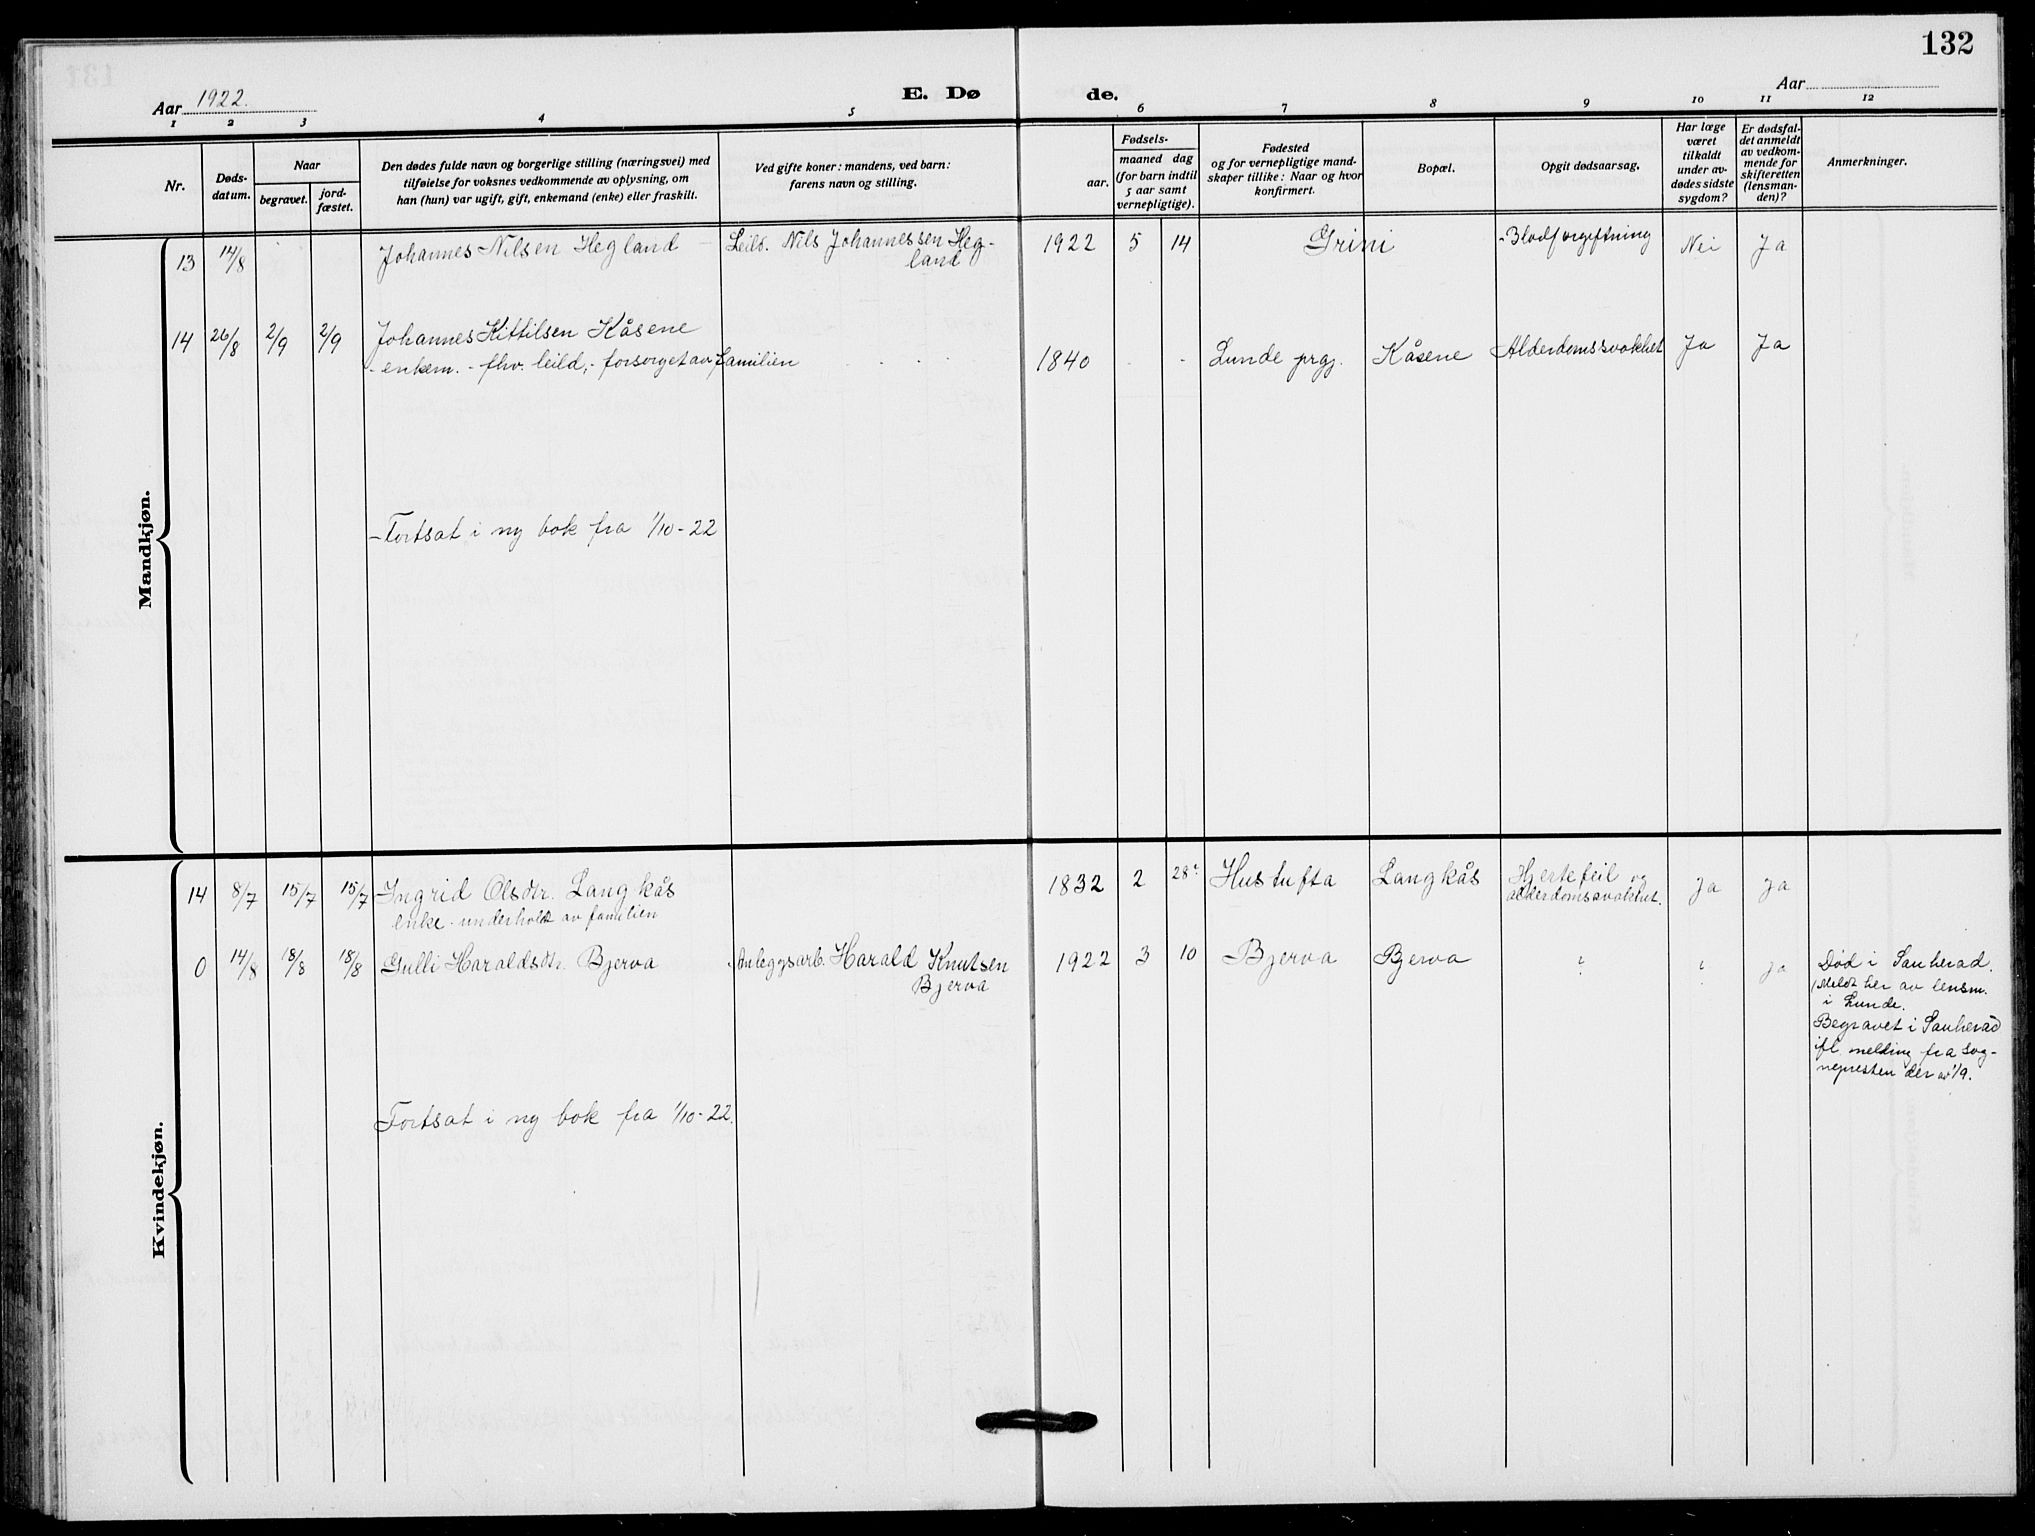 132
Aar 1922.
E. Dø
de.
Aar
1 2 3 4 5 6 7 8 9 10 11 12
Nr.
Døds-
datum.
Naar
begravet.
jord-
fæstet.
Den dødes fulde navn og borgerlige stilling (næringsvei) med
tilføielse for voksnes vedkommende av oplysning, om
han (hun) var ugift, gift, enkemand (enke) eller fraskilt.
Ved gifte koner: mandens, ved barn:
farens navn og stilling.
Fødsels-
aar.
maaned dag
(for barn indtil
5 aar samt
vernepligtige).
Fødested
og for vernepligtige mand-
skaper tillike: Naar og hvor
konfirmert.
Bopæl.
Opgit dødsaarsag.
Har læge
været
tilkaldt
under av-
dødes sidste
sygdom?
Er dødsfal-
det anmeldt
av vedkom-
mende for
skifteretten
(lensman-
den)?
Anmerkninger.
Mandkjøn.
13 14/8 Johannes Nilsen Hegland Leilb. Nils Johannessen Heg-
land
1922 5 14 Grini Blodforgiftning Nei Ja
14 26/8 2/9 2/9 Johannes Kittilsen Kåsene
- enkem. - fhv. leild, - forsorget av familien
1840 - - Lunde prgj. Kåsene Alderdomssvakhet Ja Ja
Fortsat i ny bok fra 1/10-22
Kvindekjøn.
14 8/7 15/7 15/7 Ingrid Olsdtr. Langkås
enke - underholdt av familien
1832 2 28 Hustufta Langkås Hjertefeil og
alderdomssvakhet. Ja Ja
0 14/8 18/8 18/8 Gulli Haraldsdtr. Bjerva Anleggsarb. Harald Knutsen
Bjerva
1922 3 10 Bjerva Bjerva ? ? Ja
Død i Sauherad.
(Meldt her av lensm.
i Lunde.
Begravet i Sauherad
ifl. melding fra sog-
nepresten der av 1/9.
Fortsat i ny bok fra 1/10-22.